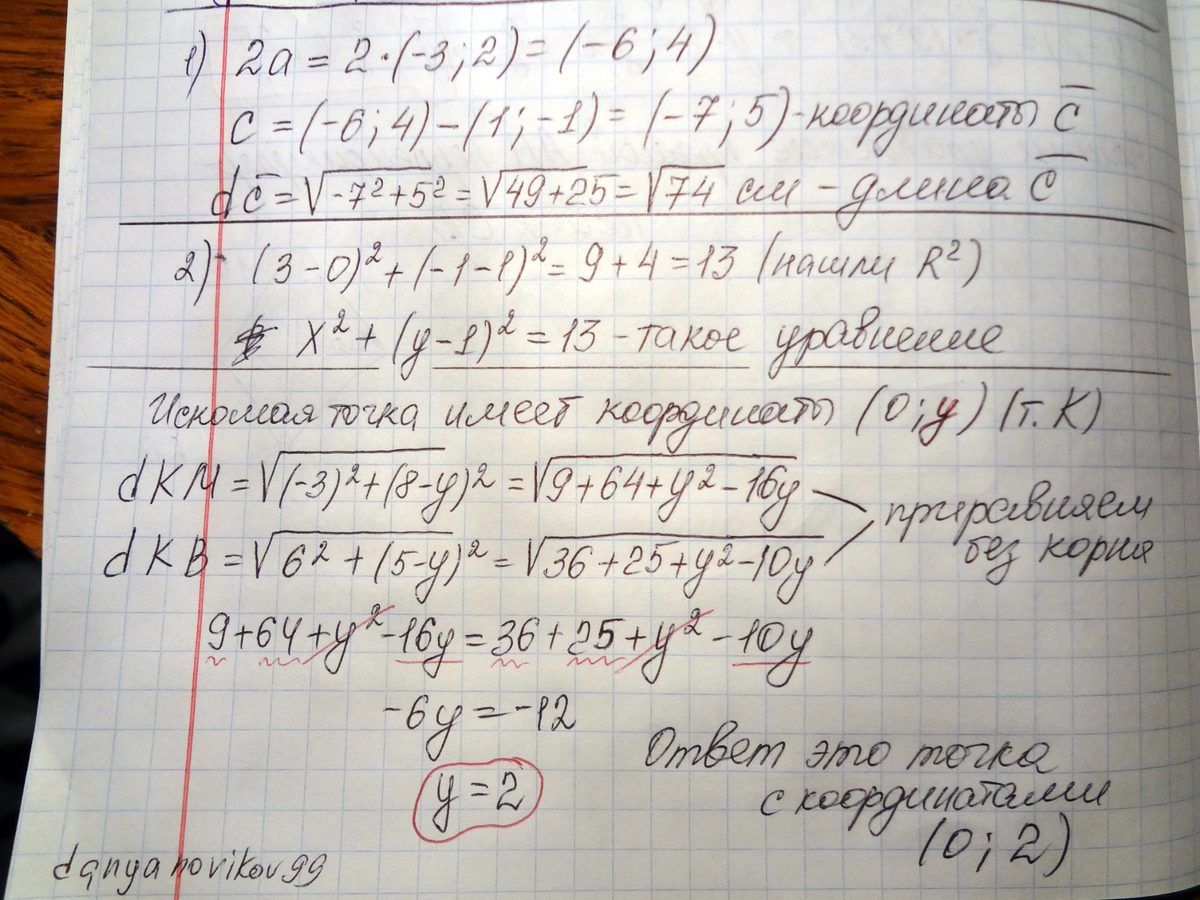 1) 2a = 2·(-3;2) = (-6;4)
c = (-6;4) - (1;-1) = (-7;5) - координаты c̅
d c̅ = √-7²+5² = √49+25 = √74 см - длина c̅
2) (3-0)² + (-1-1)² = 9+4 = 13 (нашли R²)
x² + (y-1)² = 13 - такое уравнение
Искомая точка имеет координаты (0;y) (т. K)
d KM = √(-3)²+(8-y)² = √9+64+y²-16y
приравняем
d KB = √6²+(5-y)² = √36+25+y²-10y
без корня
9+64+y²-16y = 36+25+y²-10y
-6y = -12
y = 2
Ответ это точка
с координатами
(0; 2)
danyanovikov99